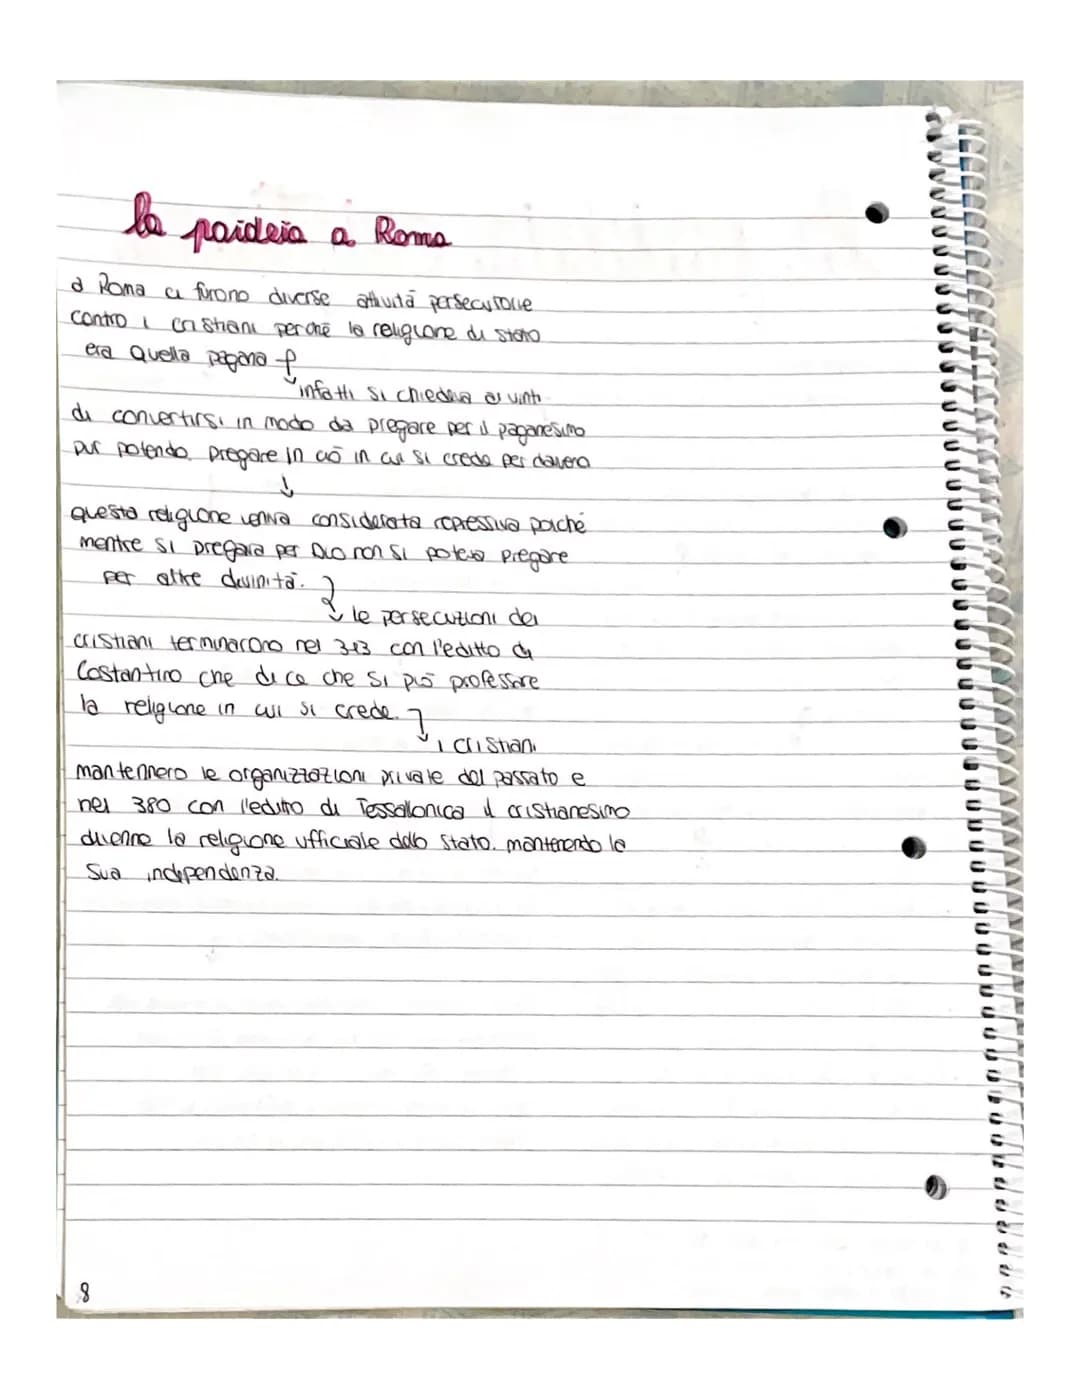 la paideia a Roma
a Roma ci furono diverse attività persecutorie
contro i cristiani perché la religione di stato
era quella pagana
infatti si chiedeva ai vinti
di convertirsi in modo da pregare per il paganesimo
pur potendo pregare in ciò in cui si crede per davvero
questa religione veniva considerata repressiva poiché
mentre si pregava per Dio non si poteva pregare
per altre divinità.
le persecuzioni dei
cristiani terminarono nel 313 con l'editto di
Costantino che dice che si può professare
la religione in cui si crede.
i cristiani
mantennero le organizzazioni private del passato e
nel 380 con l'editto di Tessallonica il cristianesimo
divenne la religione ufficiale dello stato. mantenendo la
sua indipendenza.
8